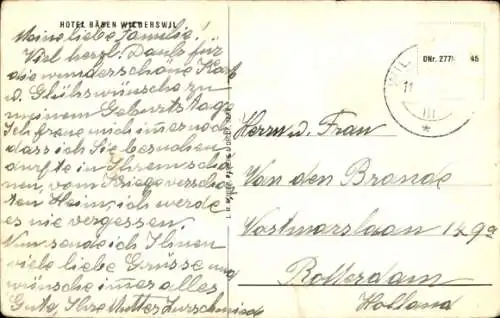 HOTEL BÄREN WILDERSWIL
Meine liebe Familie!
Viel herzl. Dank für
die wunderschöne Karte
u. Glückwünsche zu
meinem Geburtstage
Ich freue mich immer noch
dass ich Sie besuchen
durfte in Ihrem scho-
nen, vom Kriege verscho-
ten Heim, ich werde
es nie vergessen.
Nun sende ich Ihnen
viele liebe Grüsse und
wünsche immer alles
Gute, Ihre Mutter
DNr. 277 45
WIL
11
III
Herrn u. Frau
Van den Brande
Rotterdam
Holland